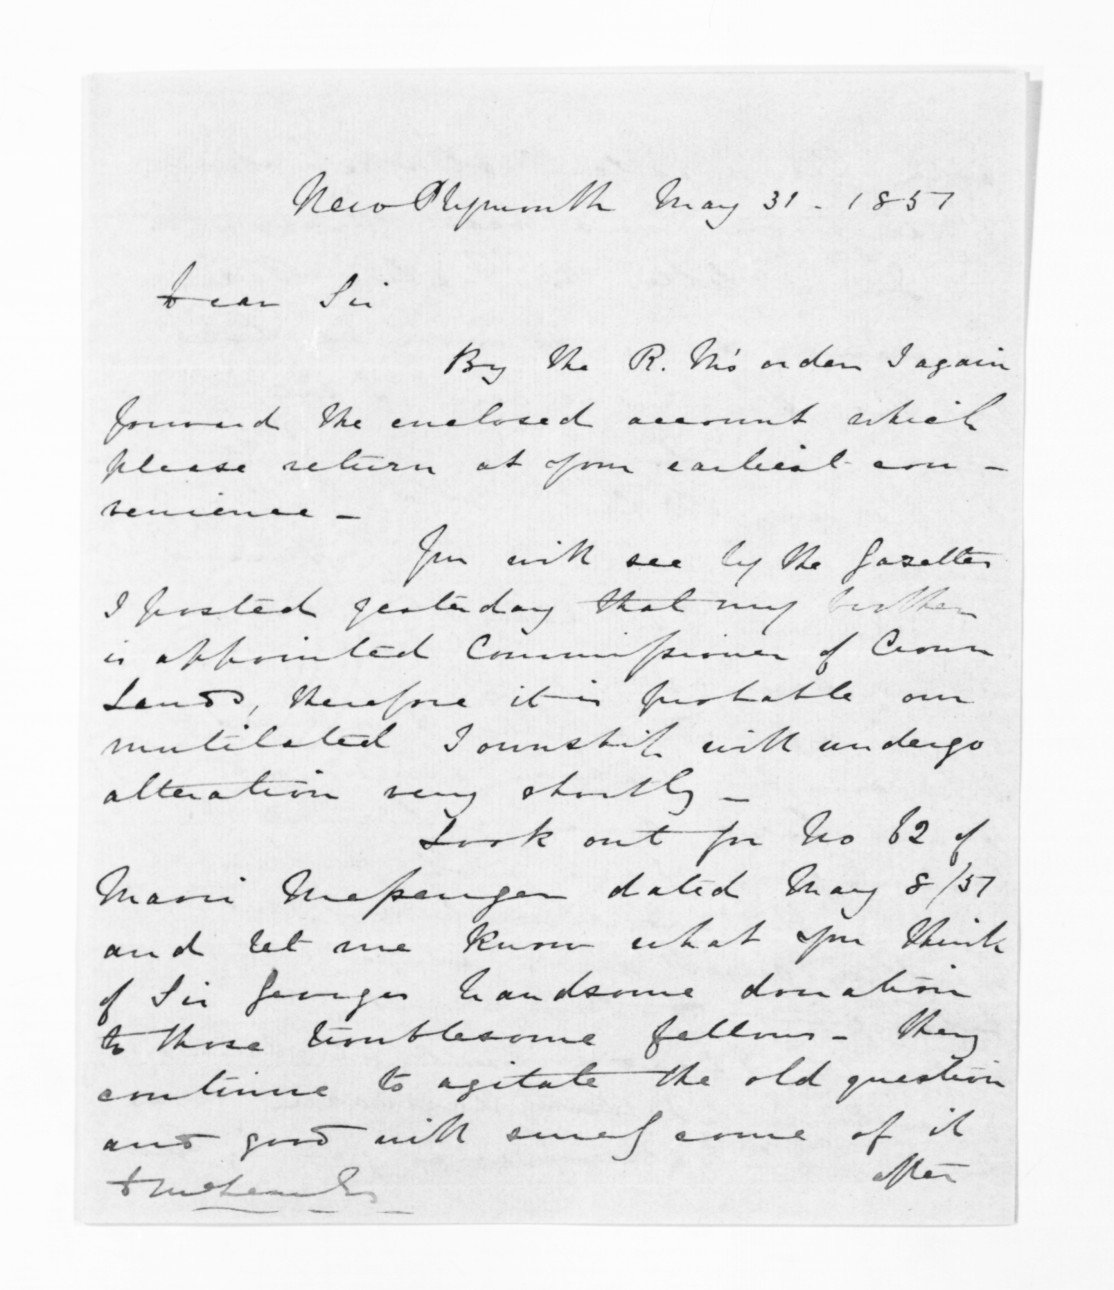 New Plymouth May 31 - 1851
Dear Sir
By the R. M's order I again
forward the enclosed account which
please return at your earliest con -
venience -
You will see by the Gazettes
I posted yesterday that my brother
is appointed Commissioner of Crown
Lands, therefore it is probable our
mutilated Township will undergo
alteration very shortly -
Look out for No 62 of
Maori Messenger dated May 8/51
and let me know what you think
of Sir Georges handsome donation
to those troublesome fellows - they
continue to agitate the old question
and good will surely come of it
after